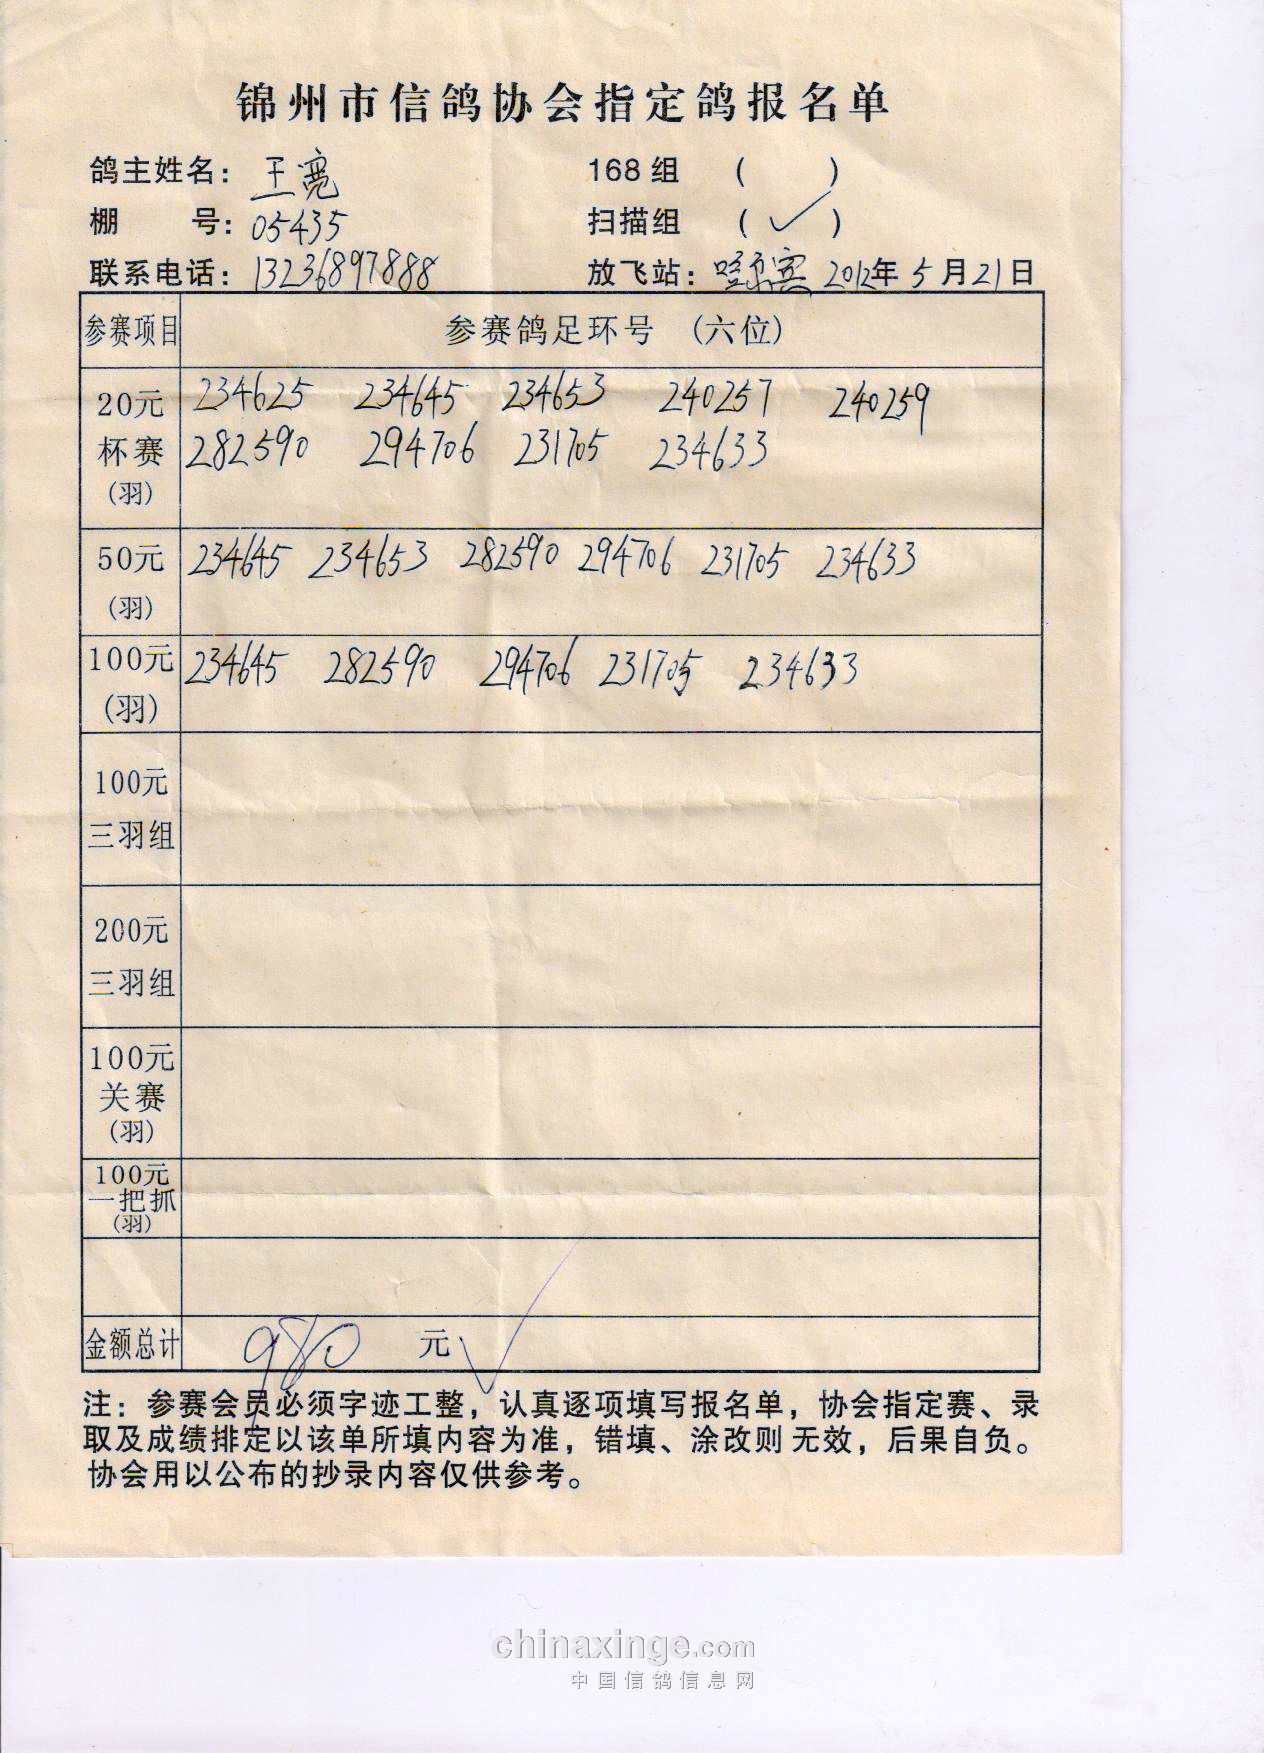 锦州市信鸽协会指定鸽报名单
鸽主姓名：王宽 168 组 （ ）
棚 号：05435 扫描组 （ ✓ ）
联系电话：13236897888 放飞站：哈尔宾 2012年 5 月 21 日
参赛项目 参赛鸽足环号 （六位）
20元 234625 234645 234653 240257 240259
杯赛 282590 294706 231705 234633
（羽）
50元 234645 234653 282590 294706 231705 234633
（羽）
100元 234645 282590 294706 231705 234633
（羽）
100元
三羽组
200元
三羽组
100元
关赛
（羽）
100元
一把抓
（羽）
金额总计 980 元 ✓
注：参赛会员必须字迹工整，认真逐项填写报名单，协会指定赛、录
取及成绩排定以该单所填内容为准，错填、涂改则无效，后果自负。
协会用以公布的抄录内容仅供参考。
chinaxinge.com
中国信鸽信息网